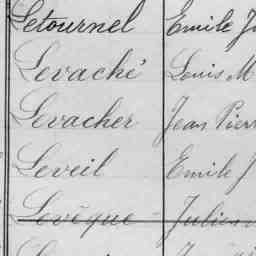 Letournel Emile J
Levaché Louis M
Levacher Jean Pierr
Leveil Emile J
Levêque Julien